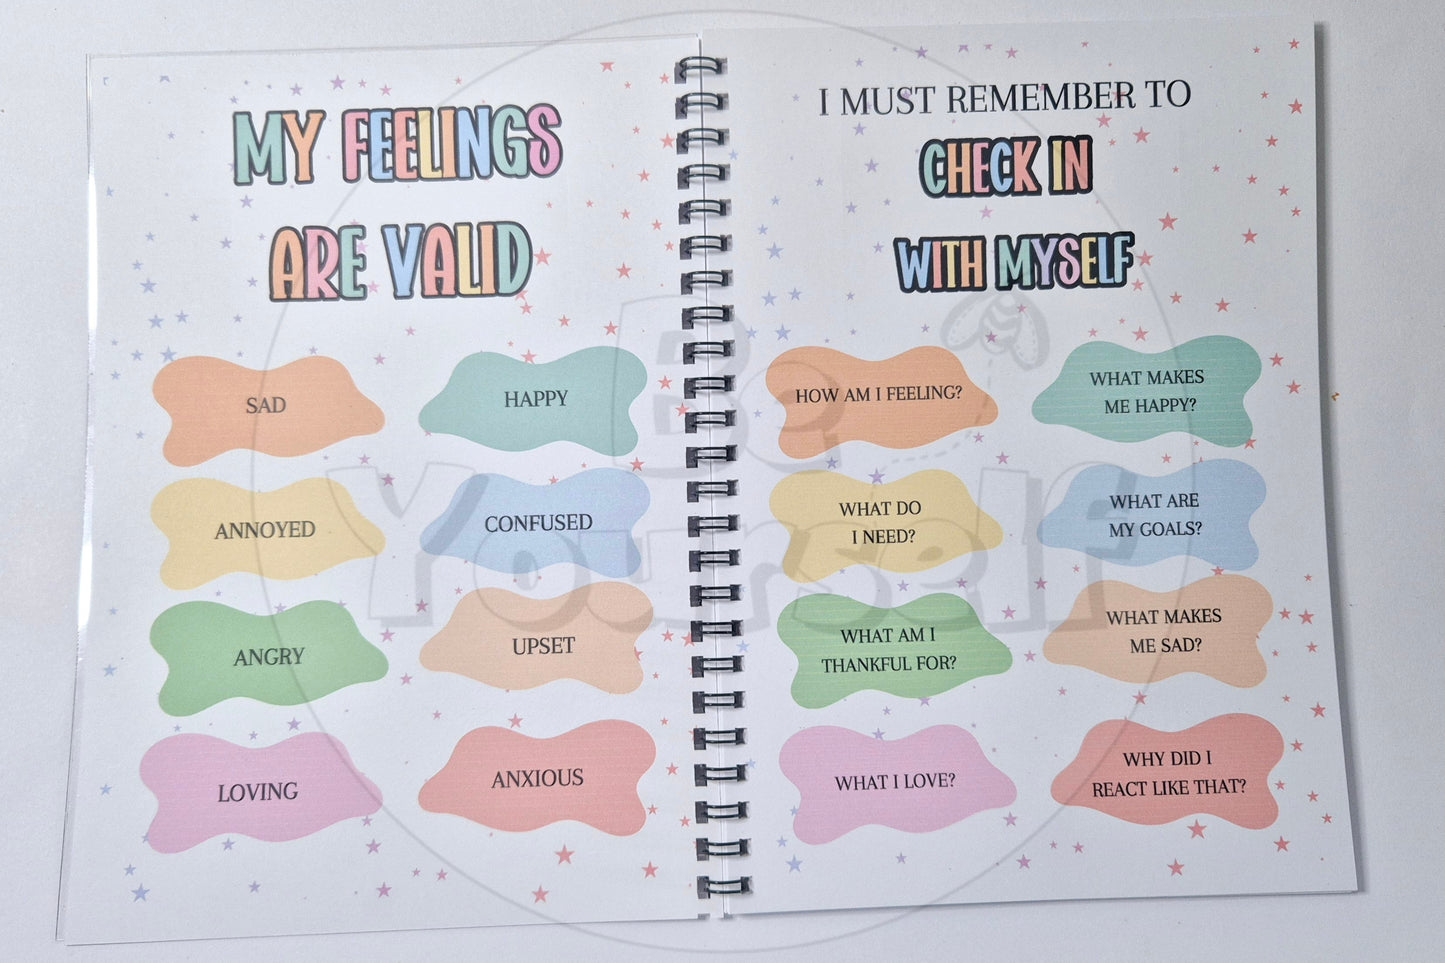 MY FEELINGS
ARE VALID
SAD
HAPPY
ANNOYED
CONFUSED
ANGRY
UPSET
LOVING
ANXIOUS
I MUST REMEMBER TO
CHECK IN
WITH MYSELF
HOW AM I FEELING?
WHAT MAKES
ME HAPPY?
WHAT DO
I NEED?
WHAT ARE
MY GOALS?
WHAT AM I
THANKFUL FOR?
WHAT MAKES
ME SAD?
WHAT I LOVE?
WHY DID I
REACT LIKE THAT?
Be
Yourself